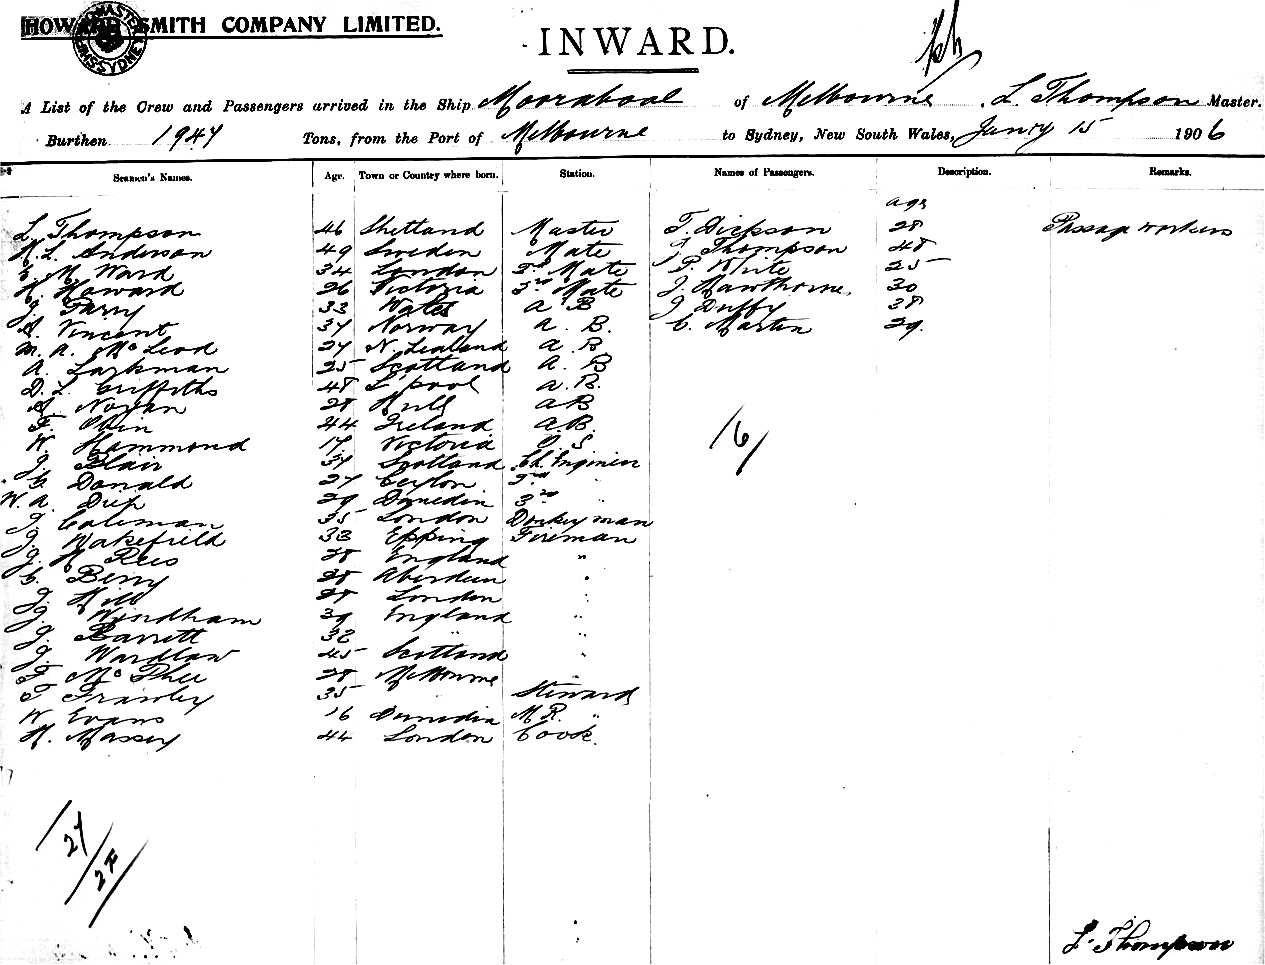 HOWARD SMITH COMPANY LIMITED.
INWARD.
A List of the Crew and Passengers arrived in the Ship Moorabool of Melbourne, L. Thompson Master.
Burthen 1947 Tons, from the Port of Melbourne to Sydney, New South Wales, Jany 15 1906
Seamen's Names. Age. Town or Country where born. Station. Names of Passengers. Description. Remarks.
age
L. Thompson 46 Shetland Master T. Dickson 28 Passage workers
A. L. Anderson 49 Sweden Mate J. Thompson 48
C. M. Ward 34 London 2nd Mate P. White 25
H. Howard 26 Victoria 3rd Mate J. Hawthorne. 30
J. Parry 33 Wales A B J Duffy 38
A. Vincent 37 Norway A. B. C. Martin 29.
M. A. McLeod 27 N. Zealand A B
A. Larkman 25 Scotland A. B
D. L. Griffiths 48 L'pool A. B.
A. Nolan 28 Hull A B
F. 44 Ireland A B.
W. Hammond 17 Victoria O S
J. Blair 37 Scotland Ch. Engineer
G Donald 27 Ceylon 2nd "
W. A. 29 Dunedin 3rd
J Coleman 35 London Donkeyman
J. Wakefield 33 Epping Fireman
J. H Rees 28 England "
C. Berry 28 Aberdeen "
J. Hill 28 London "
J. Wyndham 39 England "
J. Barrett 32 " "
J. Wardlaw 45 Scotland "
F McPhee 28 Melbourne
T Frawley 35 " Steward
W Evans 16 Dunedin M. R. "
H. Massey 44 London Cook.
/6/
/27/
2F/
L. Thompson